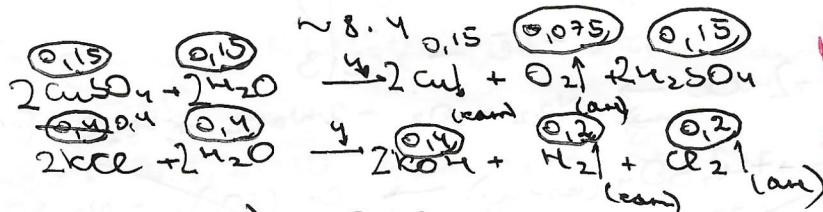 ~8.4
0,15 0,15 0,15 0,075 0,15
2CuSO4 + 2H2O → 2Cu↓ + O2↑ + 2H2SO4
(кат) (ан)
0,4 0,4 0,4 0,4 0,2 0,2
2KCl + 2H2O → 2KOH + H2↑ + Cl2↑
(кат) (ан)